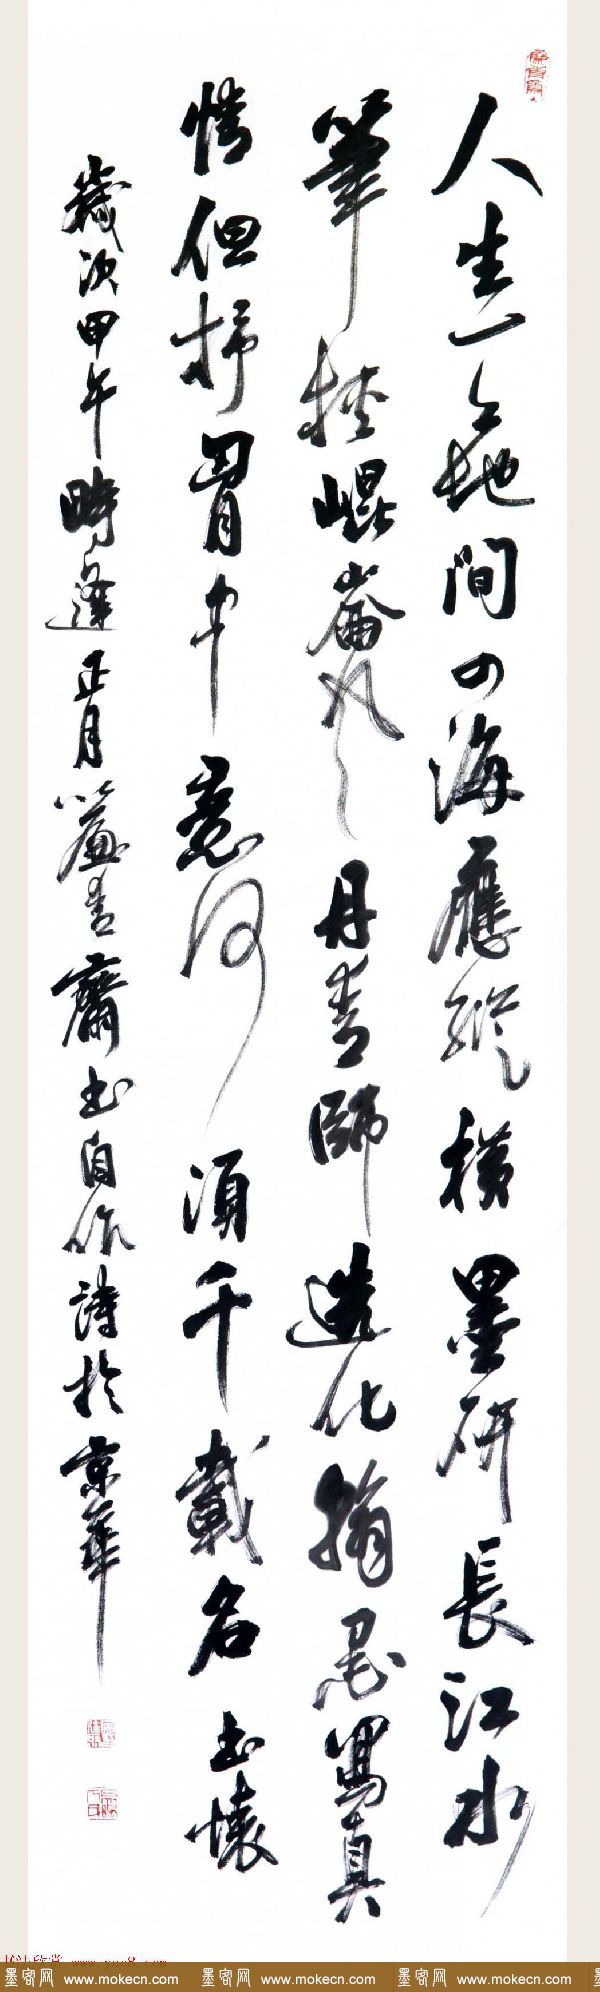 人生一天地間四海應縱橫墨研長江水
筆挂崐崙松丹青師造化翰墨寫真
情但抒胃中意何須千載名 書懷
歲次甲午時逢正月簾青齋書自作詩於京華
墨客网 www.mokecn.com 墨客网 www.mokecn.com 墨客网 www.mokecn.com